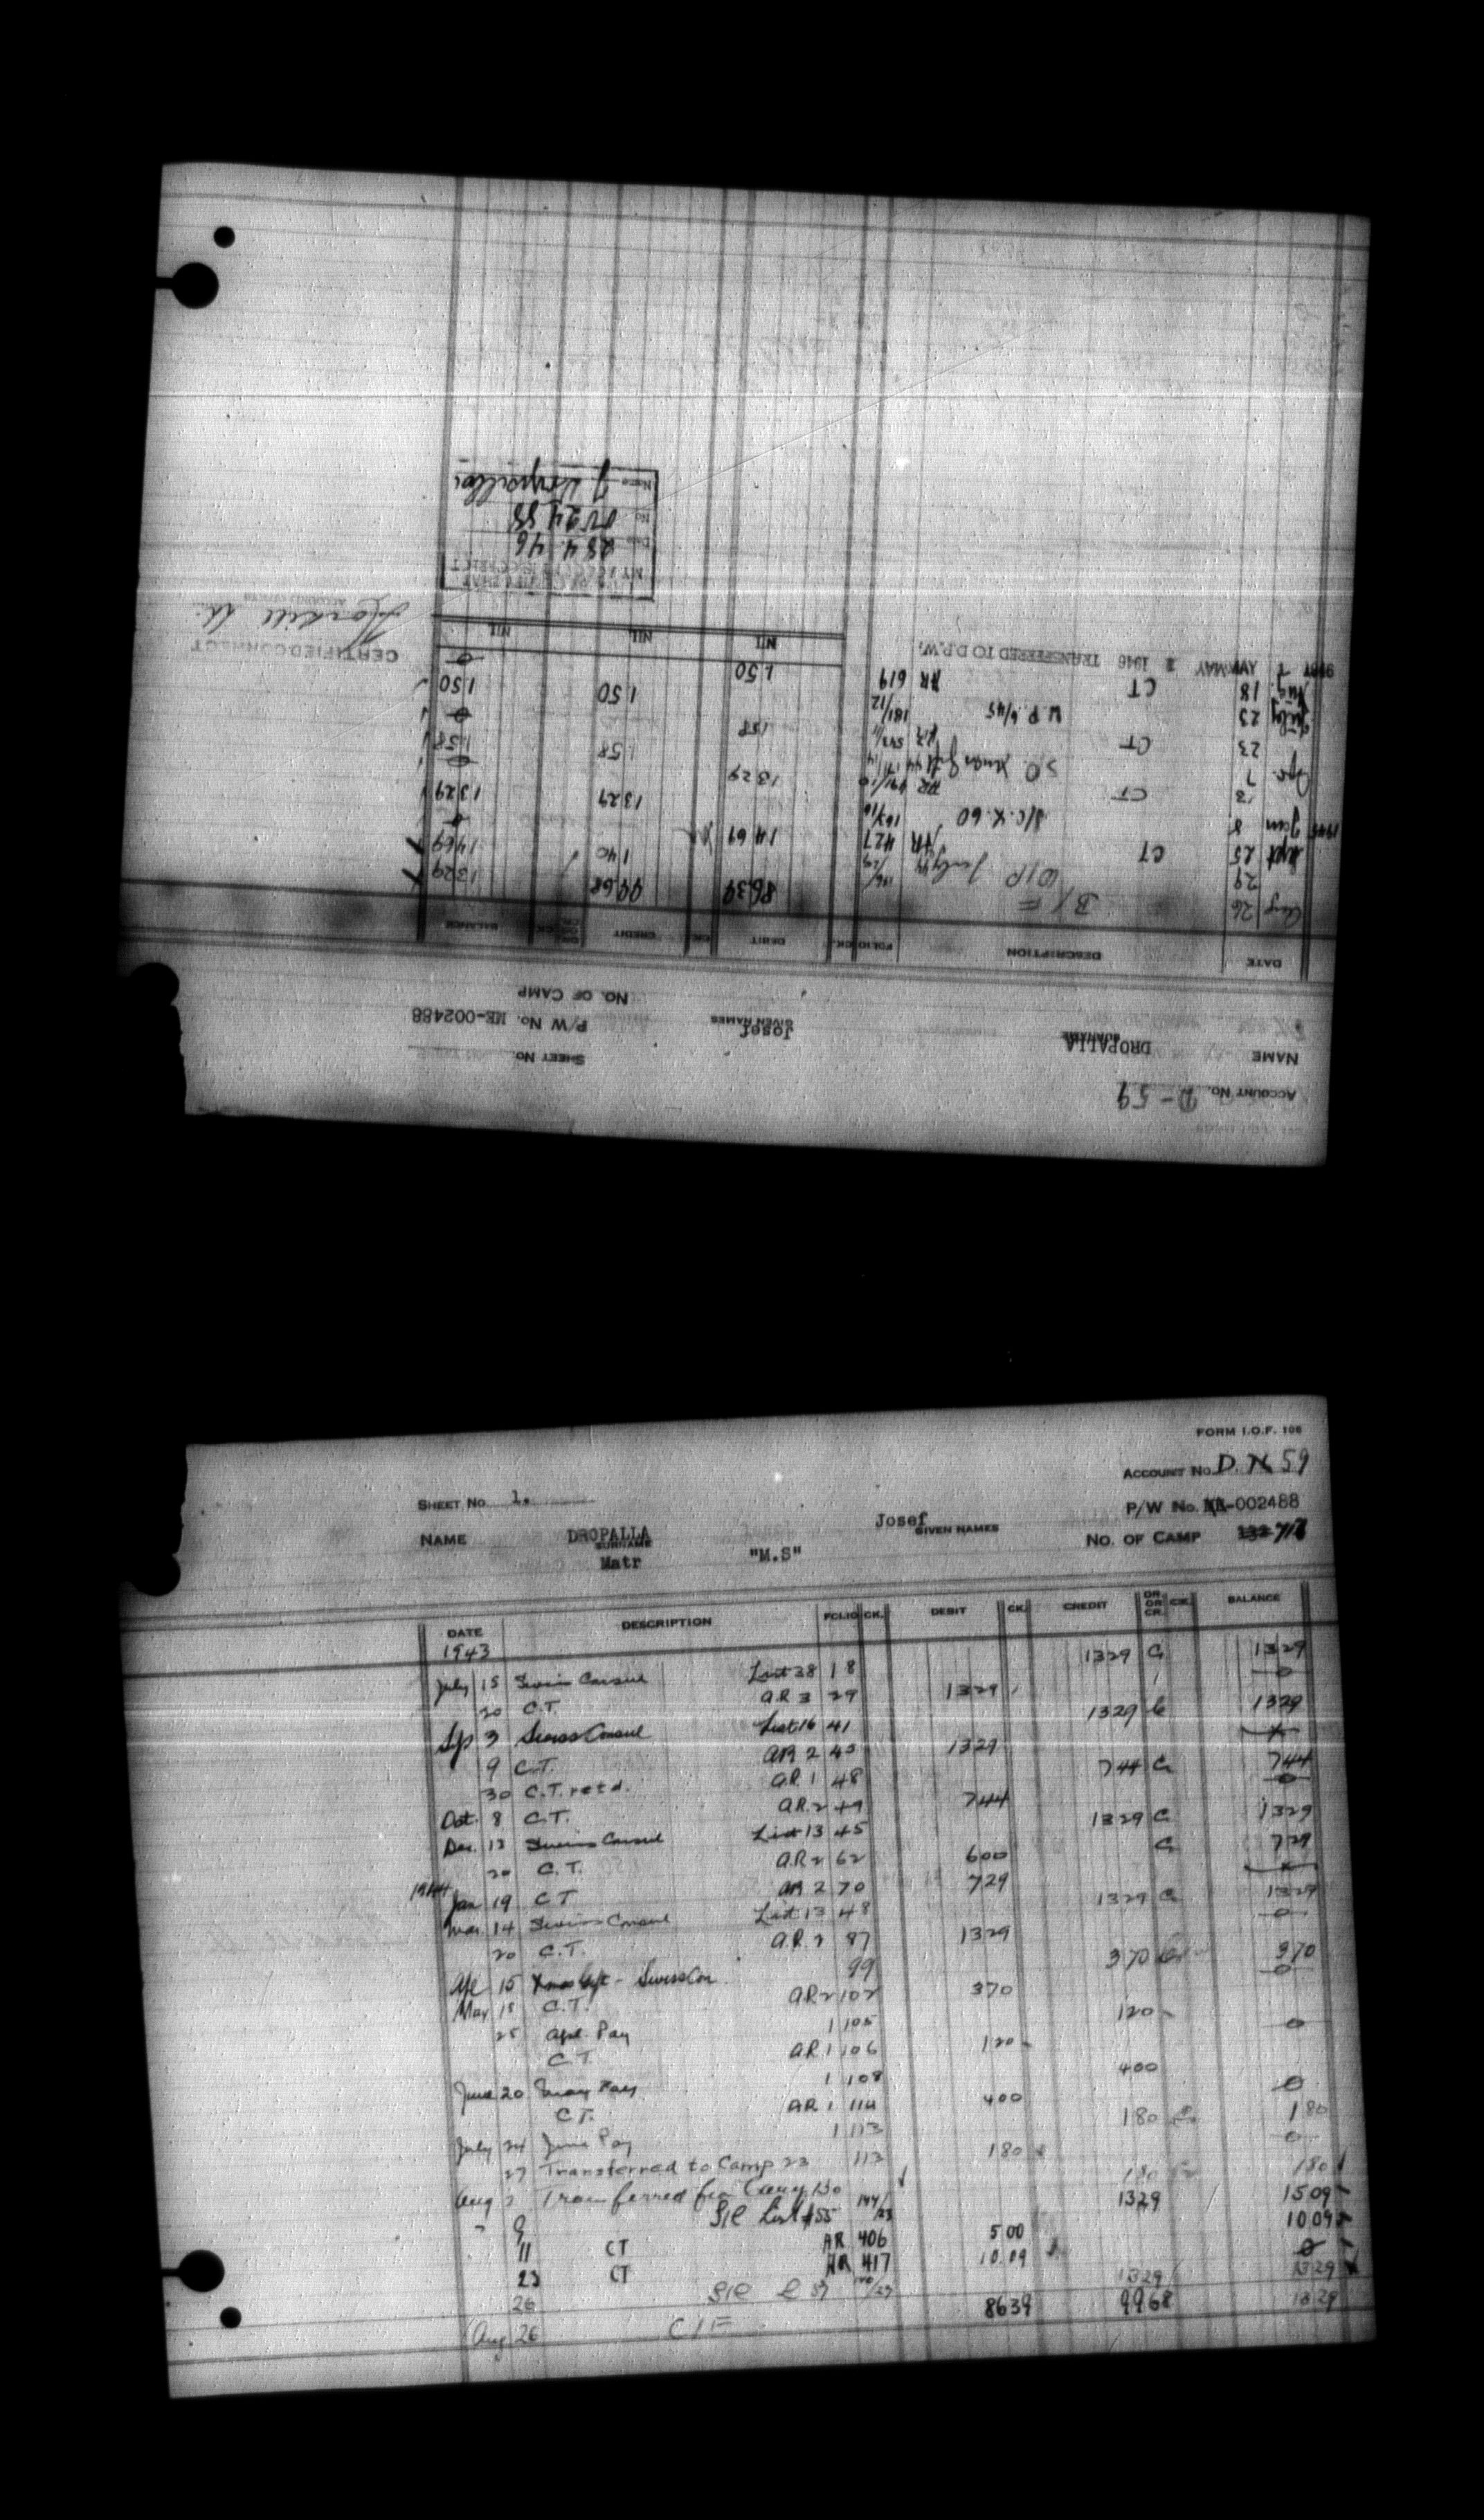 ACCOUNT No. D-59
NAME DROPALLA SURNAME Josef GIVEN NAMES
SHEET No.
P/W No. ME-002488
NO. OF CAMP
DATE DESCRIPTION FOLIO CK. DEBIT CK. CREDIT DR. OR CR. CK. BALANCE
Aug 26 B/F 8639 9968 1329
29 W/P July 44 140 1469
Sept 25 CT AR 427 1469
1945 Jan 8 1329 1329
13 CT AR 1329
Apr. 7 158 158
23 CT 158
July 23 W.P. 6/45 181/12 150 150
Aug. 18 CT AR 619 150
MAY 1 1946 TRANSFERRED TO D.P.W. NIL NIL NIL
CERTIFIED CORRECT
28 4 46
No. 2488
Name J Dropalla
FORM I.O.F. 106
ACCOUNT No. D. 59
SHEET No. 1.
P/W No. -002488
NAME DROPALLA SURNAME Josef GIVEN NAMES
NO. OF CAMP
Matr "M.S"
DATE DESCRIPTION FOLIO CK. DEBIT CK. CREDIT DR. OR CR. CK. BALANCE
1943
July 15 Swiss Consul List 38 18 1329 C 1329
20 C.T. A.R. 3 29 1329 0
Sep 3 Swiss Consul List 16 41 1329 C 1329
9 C.T. AR 2 45 1329
30 C.T. retd. A.R. 1 48 744 C 744
Oct. 8 C.T. A.R. 2 49 744 0
Dec. 13 Swiss Consul List 13 45 1329 C 1329
20 C.T. A.R. 2 62 600 C 729
1944 Jan 19 C.T AR 2 70 729
Mar 14 Swiss Consul List 13 48 1329 C 1329
20 C.T. A.R. 2 87 1329 0
Apl 15 Xmas Gift - Swiss Con. 99 370 Cr 370
May 18 C.T. A.R. 2 102 370 0
25 Apl. Pay 1 105 120
C.T. A.R. 1 106 120 0
June 20 May Pay 1 108 400
C.T. A.R. 1 114 400 0
July 24 June Pay 1 113 180 180
27 Transferred to Camp 23 113 180 0
Aug 2 Transferred from Camp 130 180 180
" 9 S/C List #55 144/23 1329 1509
11 CT AR 406 5.00 1009
23 CT AR 417 10.09 0
26 S/C 1329 1329
Aug 26 C/F 8639 9968 1329